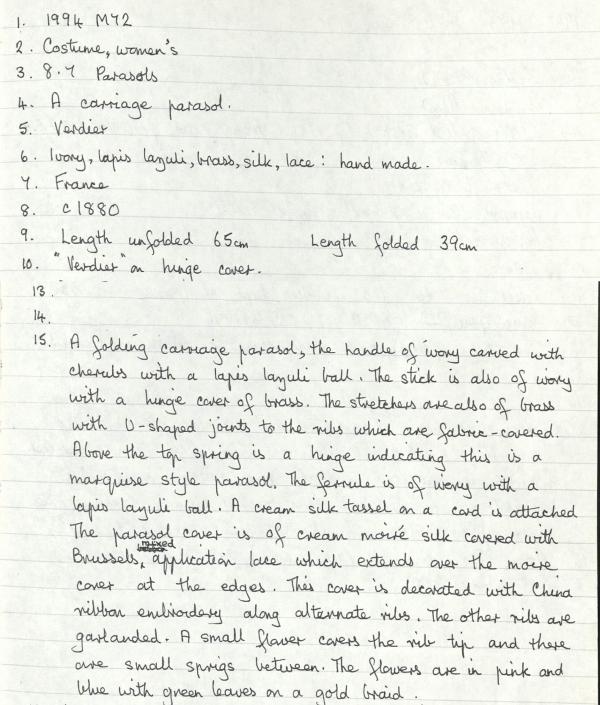 1. 1994 M42
2. Costume, women's
3. 8.7 Parasols
4. A carriage parasol.
5. Verdier
6. Ivory, lapis lazuli, brass, silk, lace: hand made.
7. France
8. c1880
9. Length unfolded 65cm Length folded 39cm
10. "Verdier" on hinge cover.
13.
14.
15. A folding carriage parasol, the handle of ivory carved with
cherubs with a lapis lazuli ball. The stick is also of ivory
with a hinge cover of brass. The stretchers are also of brass
with U-shaped joints to the ribs which are fabric-covered.
Above the top spring is a hinge indicating this is a
marquise style parasol. The ferrule is of ivory with a
lapis lazuli ball. A cream silk tassel on a cord is attached
The parasol cover is of cream moiré silk covered with
mixed
Brussels, application lace which extends over the moire
cover at the edges. This cover is decorated with China
ribbon embroidery along alternate ribs. The other ribs are
garlanded. A small flower covers the rib tip and there
are small sprigs between. The flowers are in pink and
blue with green leaves on a gold braid.